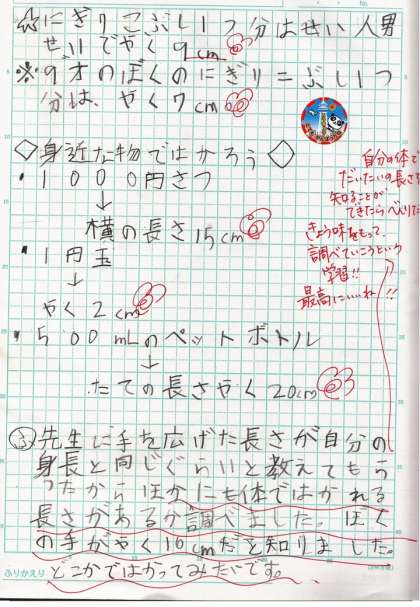 ☆にぎりこぶし1つ分はせい人男
せいでやく9cm
※9才のぼくのにぎりこぶし1つ
分は、やく7cm
◇身近な物ではかろう◇
・1000円さつ
↓
横の長さ15cm
・1円玉
↓
やく2cm
・500mLのペットボトル
↓
たての長さやく20cm
自分の体で
だいたいの長さを
知ることが
できたらべんりだ
きょう味をもって、
調べていこうという
学習!!
最高にいいね!!
ふ先生に手を広げた長さが自分の
身長と同じぐらいと教えてもら
ったからほかにも体ではかれる
長さがあるか調べました。ぼく
の手がやく10cmだと知りました。
どこかではかってみたいです。
ふりかえり